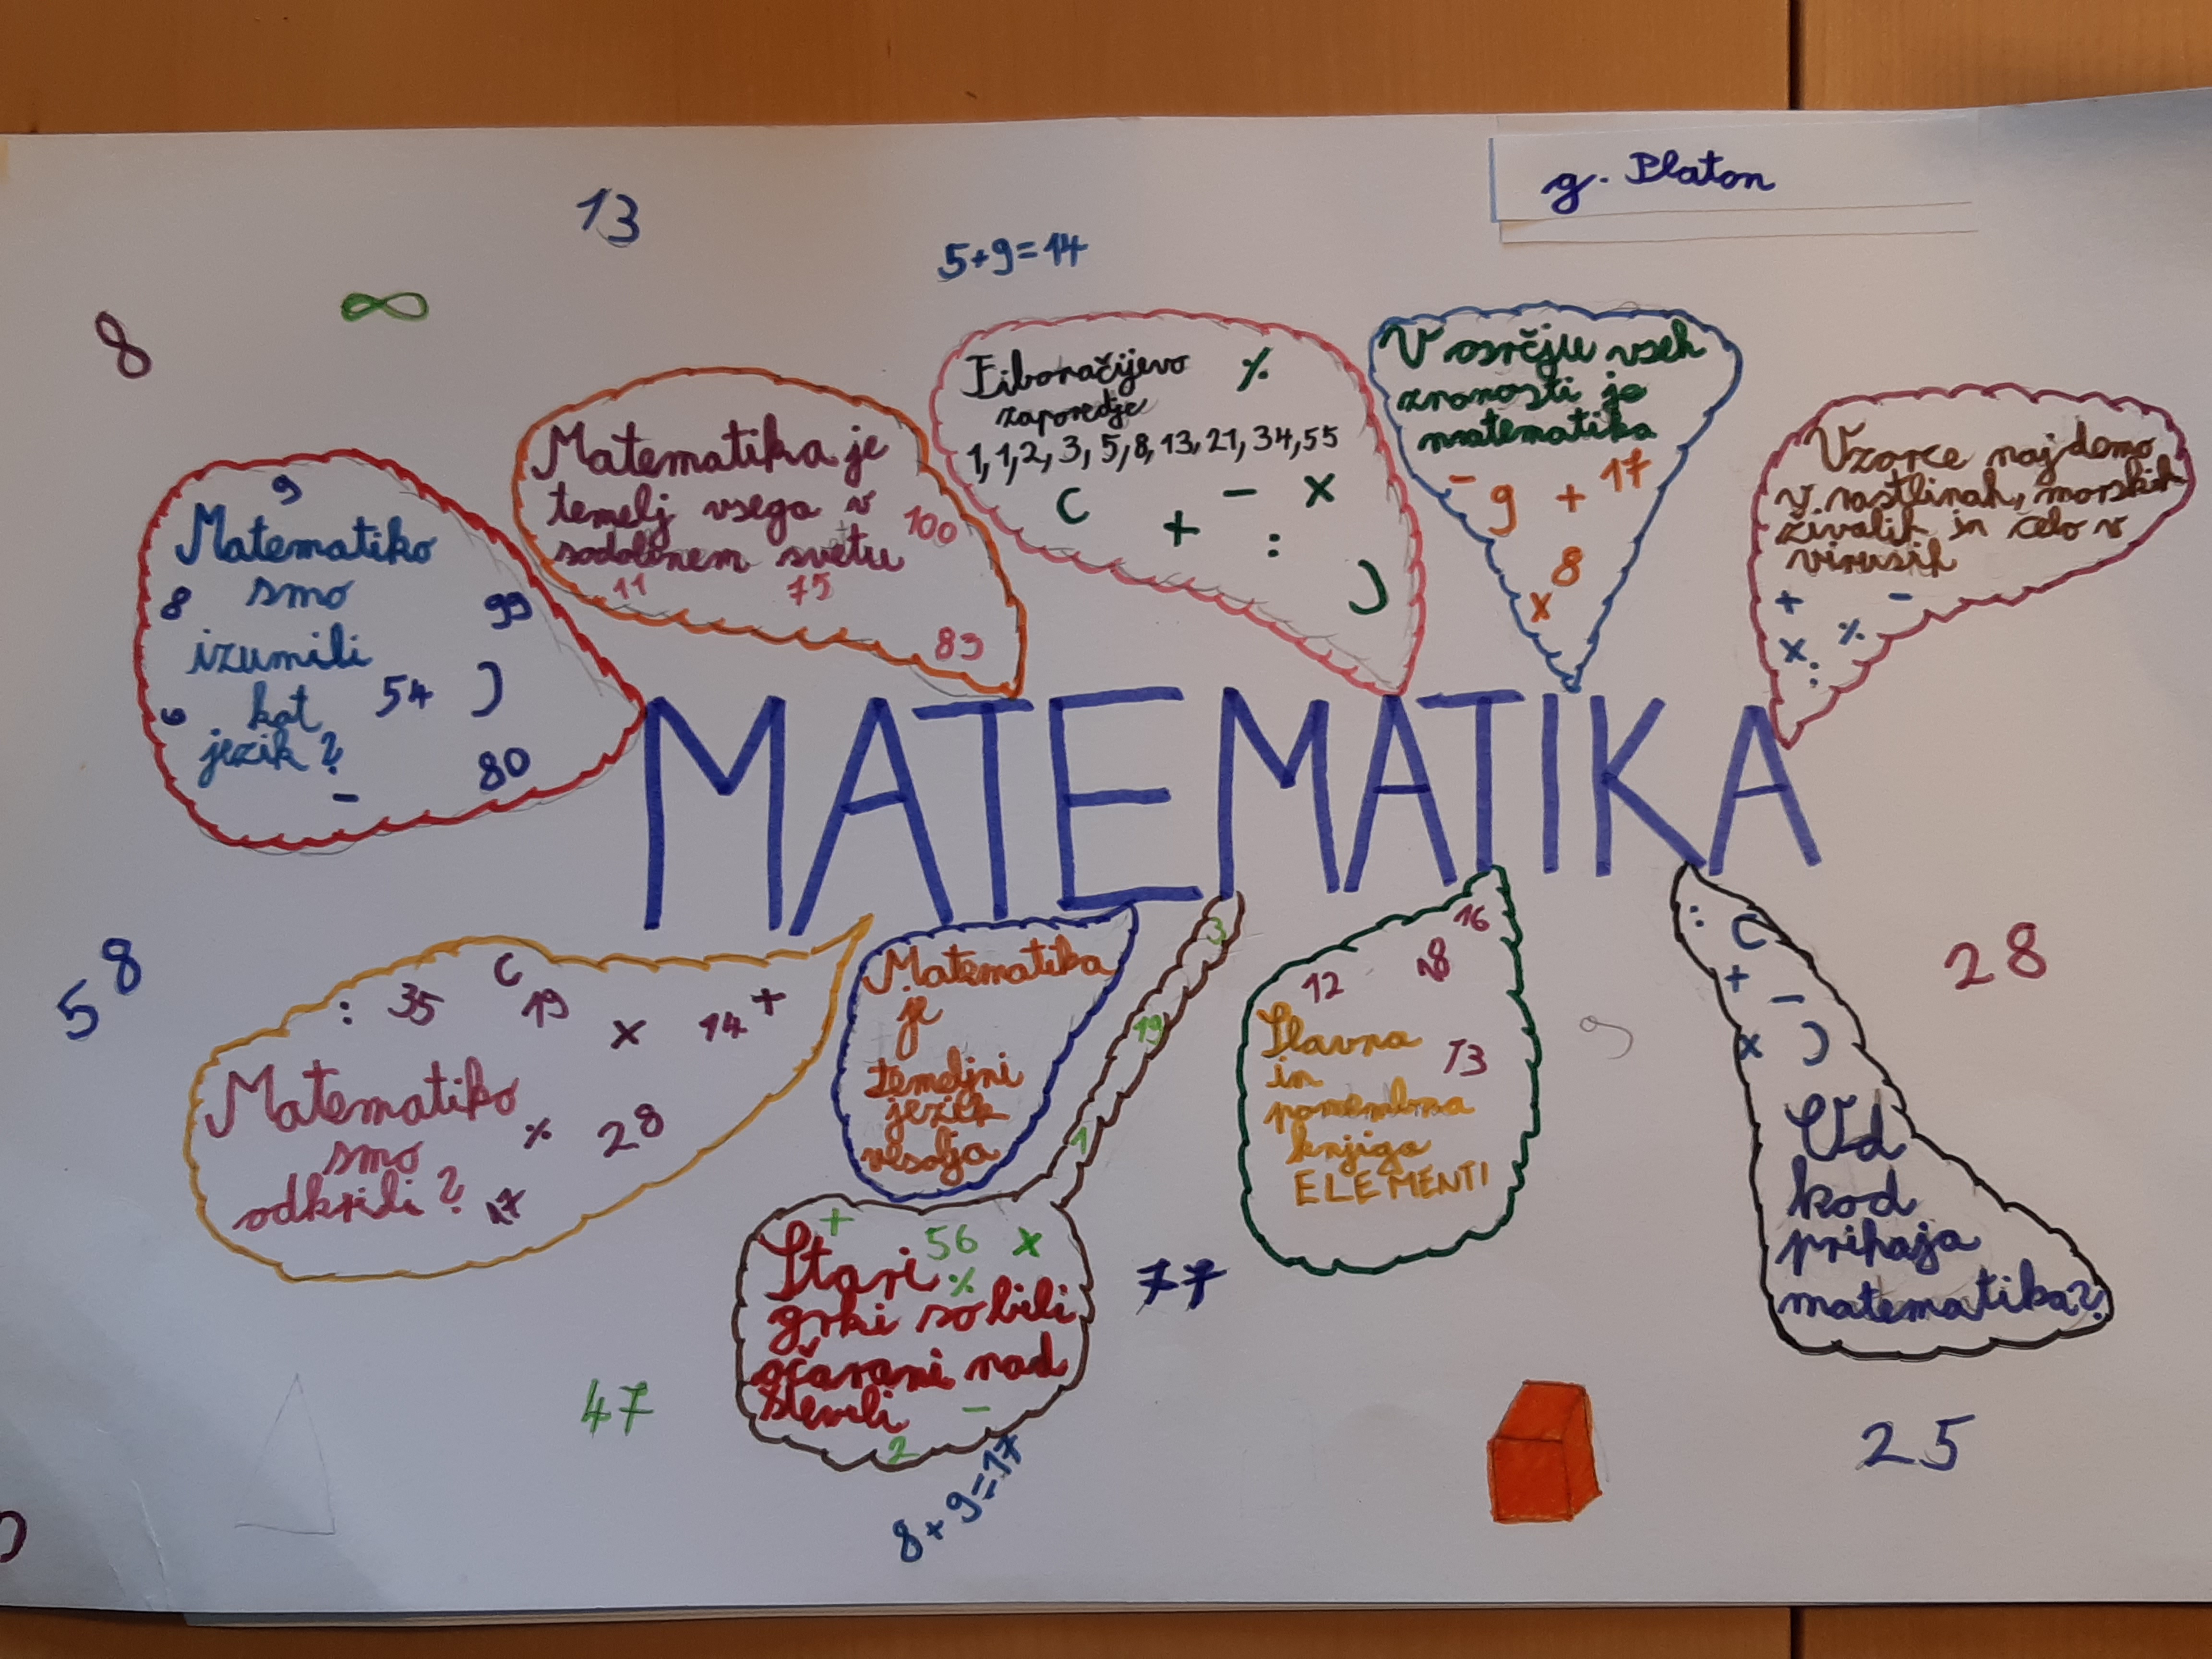 g. Platon
13
5+9=14
8
∞
9
Matematiko
smo
8
99
izumili
54
)
6
kot
jezik?
80
-
Matematika je
temelj vsega v
100
sodobnem svetu
11
75
83
Fibonačijevo
%
zaporedje
1,1,2,3,5,8,13,21,34,55
(
+
-
x
:
)
V osrčju vseh
znanosti je
matematika
- 9 + 17
8
x
Vzorce najdemo
v rastlinah, morskih
živalih in celo v
virusih
+ -
x %
:
MATEMATIKA
58
: 35 ( 19 x 14 +
Matematiko
smo
% 28
odkrili?
17
Matematika
je
temeljni
jezik
vesolja
3
19
1
+ 56 x
Stari %
grki so bili
očarani nad
števili -
2
8+9=17
47
77
16
12
18
Slavna
13
in
pomembna
knjiga
ELEMENTI
9
: (
+ -
x )
Od
kod
prihaja
matematika?
28
25